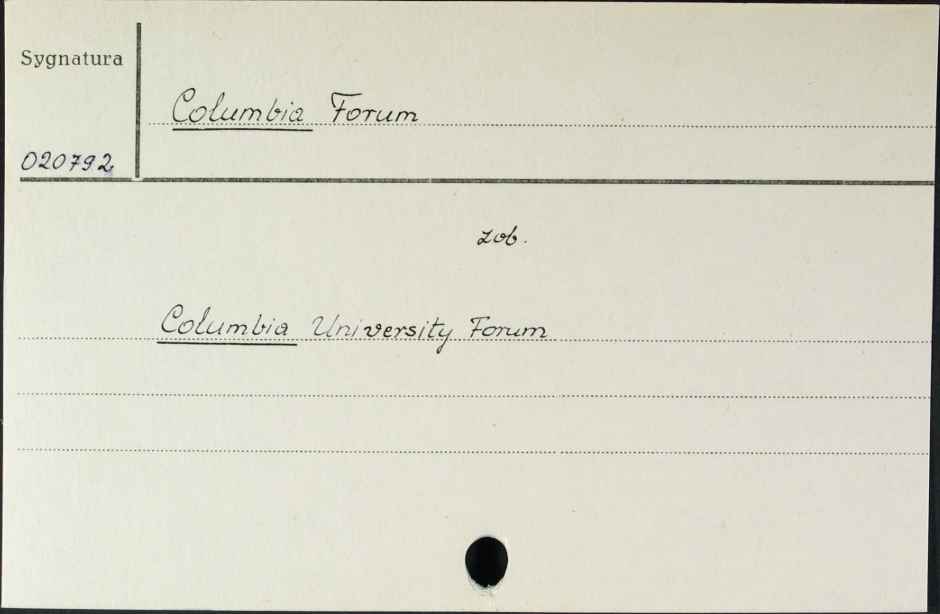 Sygnatura
Columbia Forum
020792
zob.
Columbia University Forum